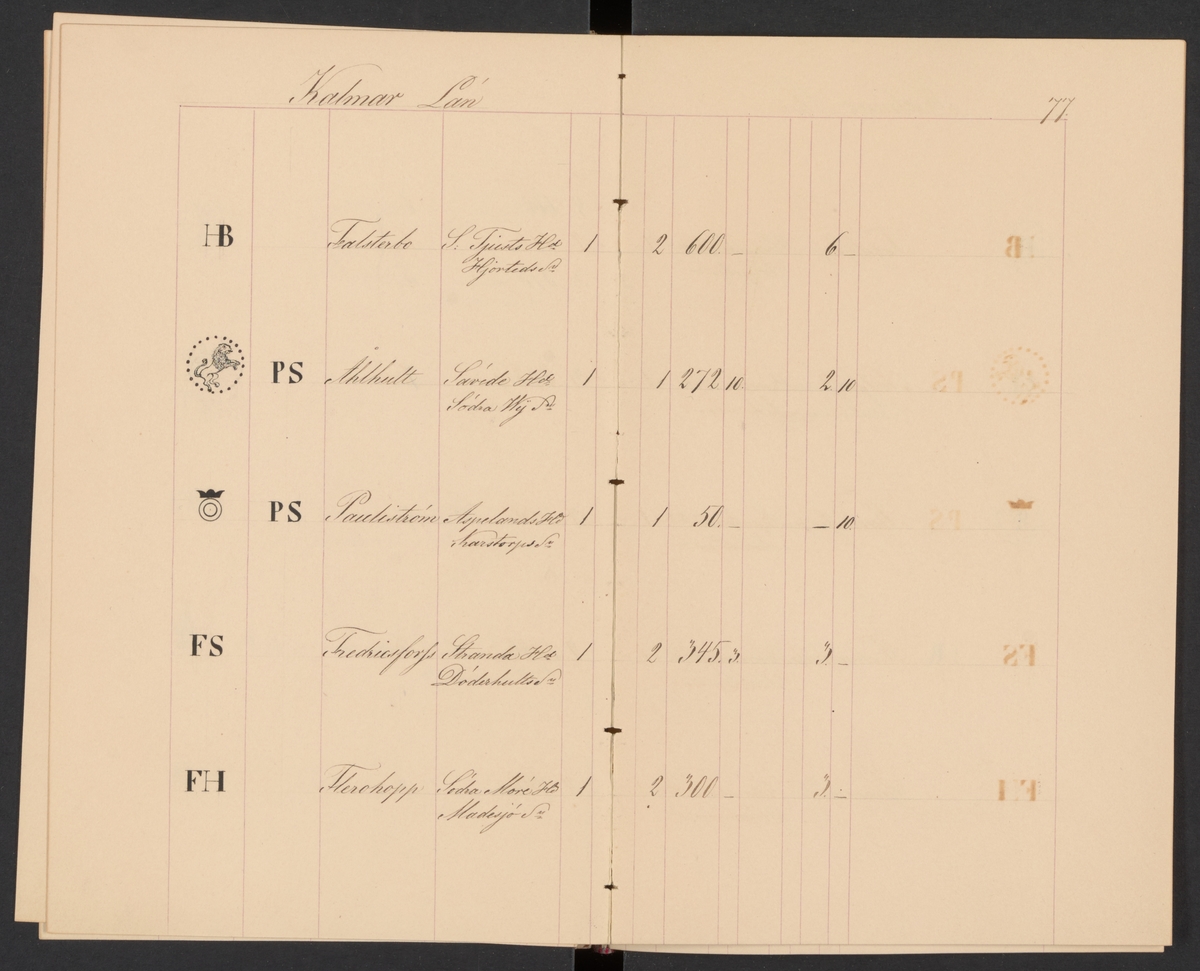 Kalmar Län
77.
HB Falsterbo S: Tjusts Hd 1 2 600. – 6 –
Hjorteds Sn
PS Åhlhult Sävede Hd 1 1 272 10. 2. 10
Södra Wij Sn
PS Pauliström Aspelands Hd 1 1 50. – – 10.
Karstorps Sn
FS Fredricsforss Stranda Hd 1 2 345. 3. 3. –
Döderhults Sn
FH Flerohopp Södra Möre Hd 1 2 300 – 3. –
Madesjö Sn